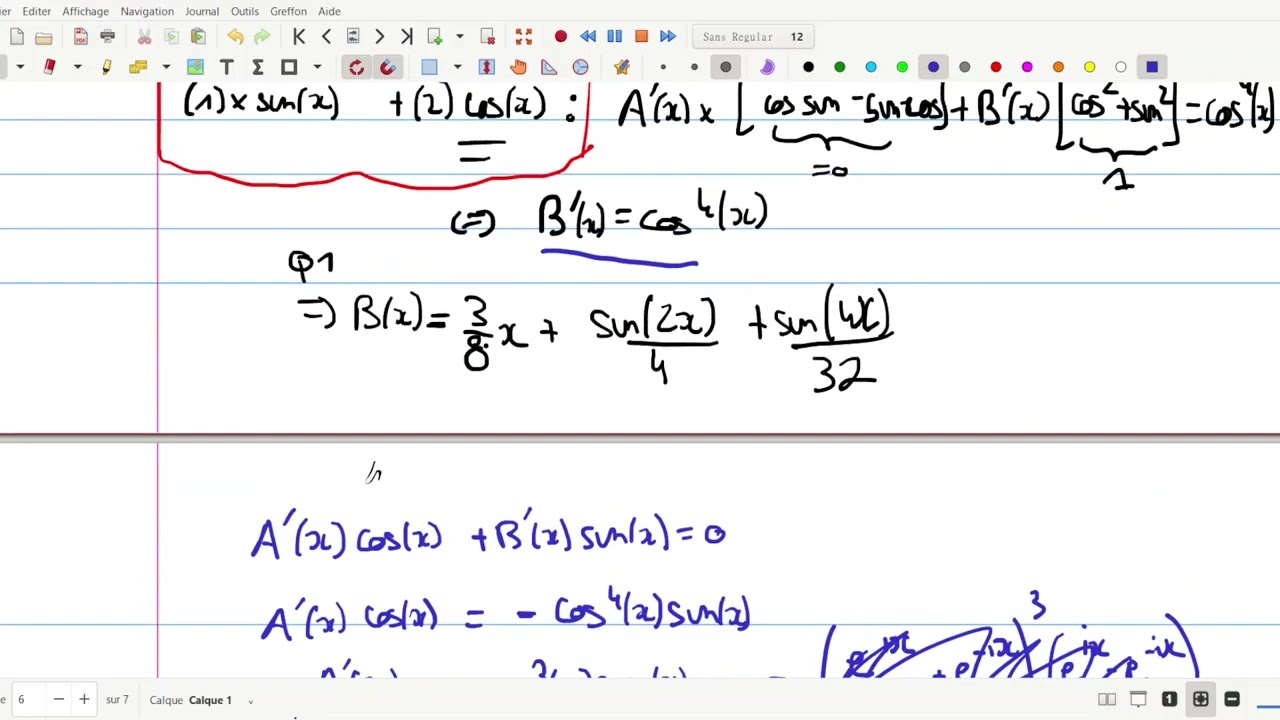 ier Editer Affichage Navigation Journal Outils Greffon Aide
Sans Regular 12
(1) × sin(x) + (2) cos(x) : A'(x) × [cos sin - sin cos] + B'(x) [cos² + sin²] = cos⁴(x)
=0 1
(=) B'(x) = cos⁴(x)
Q1
=> B(x) = 3/8 x + sin(2x)/4 + sin(4x)/32
A'(x) cos(x) + B'(x) sin(x) = 0
A'(x) cos(x) = - cos⁴(x) sin(x)
3
e 6 sur 7 Calque Calque 1